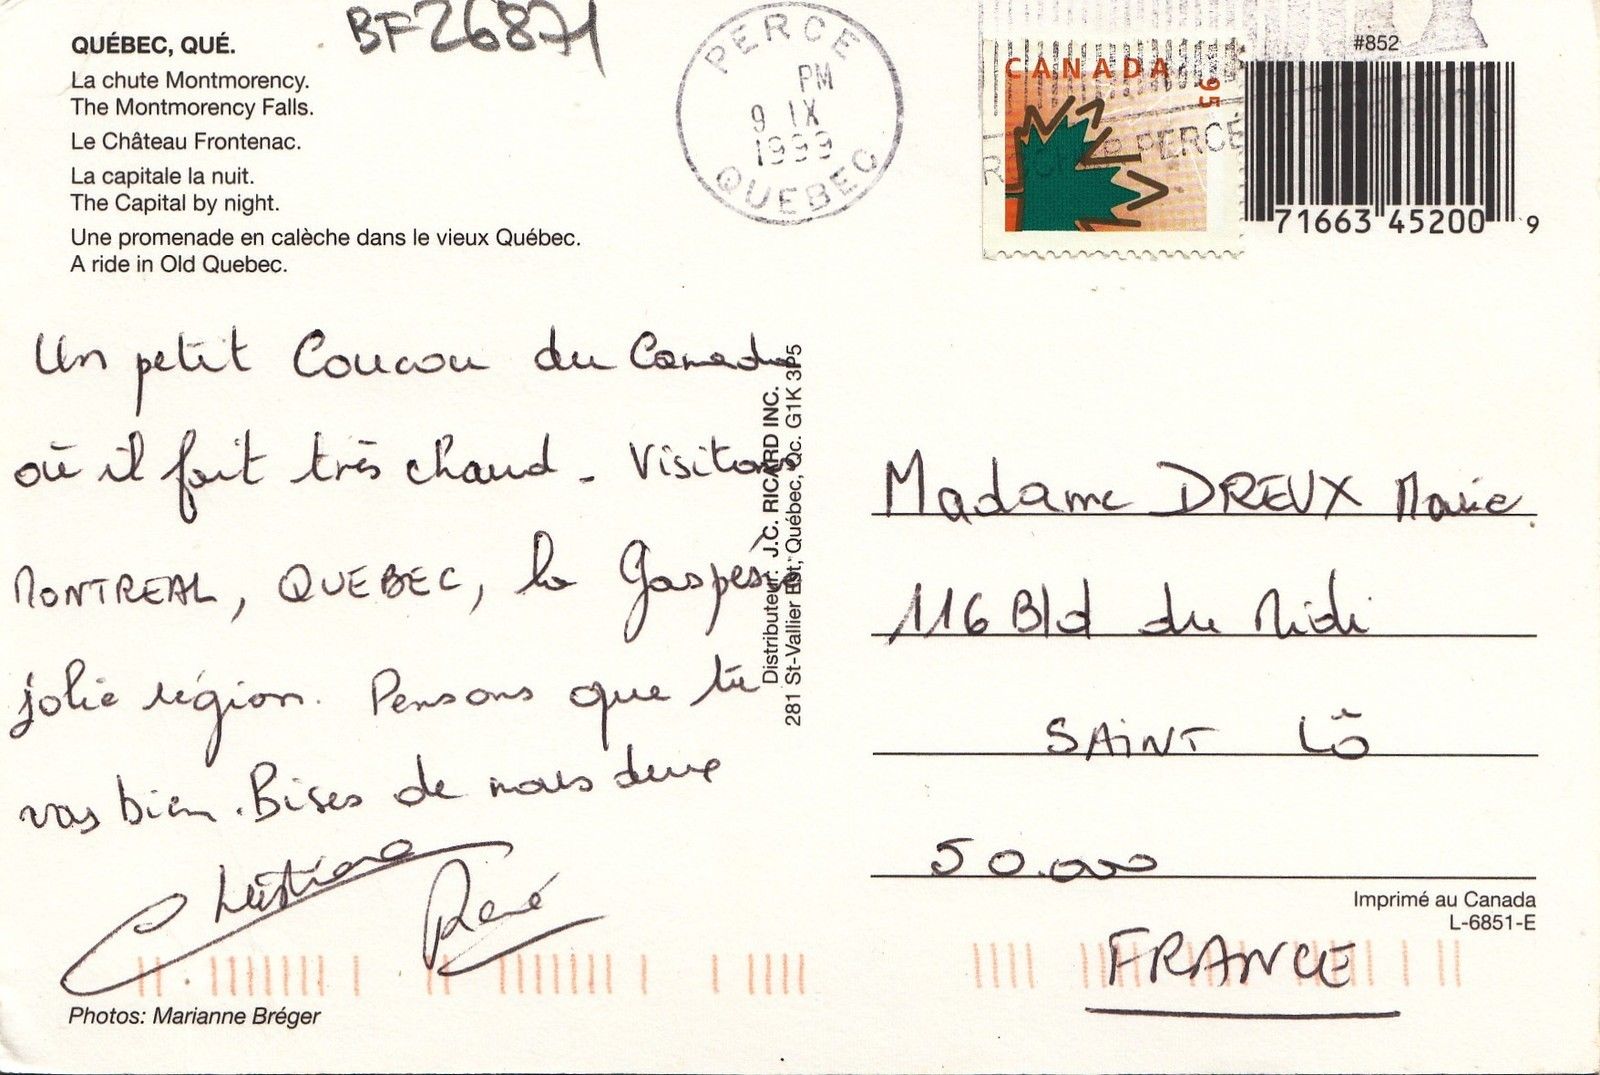 BF26871
QUÉBEC, QUÉ.
La chute Montmorency.
The Montmorency Falls.
Le Château Frontenac.
La capitale la nuit.
The Capital by night.
Une promenade en calèche dans le vieux Québec.
A ride in Old Quebec.
PERCE
PM
9 IX
1999
QUEBEC
CANADA 95
PERCÉ
#852
71663 45200 9
Un petit Coucou du Canada
où il fait très chaud - Visitons
MONTREAL, QUEBEC, la Gaspésie
jolie région. Pensons que tu
vas bien. Bises de nous deux
Christiane René
Photos: Marianne Bréger
Distributeur: J.C. RICARD INC.
281 St-Vallier Est, Québec, Qc. G1K 3P5
Madame DREUX Marie
116 Bld du Midi
SAINT Lô
50.000
FRANCE
Imprimé au Canada
L-6851-E